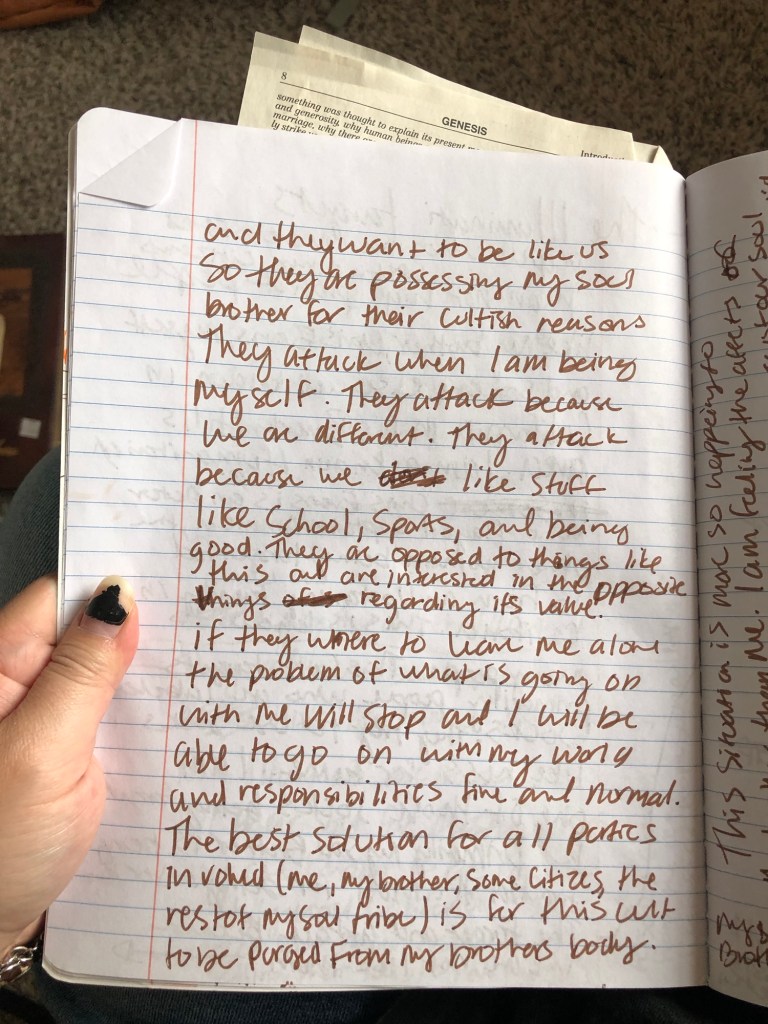 8
GENESIS
something was thought to explain its present
and generosity, why human beings
marriage, why there
ly strike
and they want to be like us
So they are possessing my soul
brother for their cultish reasons
They attack when I am being
myself. They attack because
we are different. They attack
because we like stuff
like School, Sports, and being
good. They are opposed to things like
this and are interested in the opposite
things regarding its value.
if they where to leave me alone
the problem of what is going on
with me will stop and I will be
able to go on with my world
and responsibilities fine and normal.
The best solution for all parties
involved (me, my brother, some citizes, the
rest of my soul tribe) is for this cult
to be purged from my brothers body.
This situation is more so happening to
than me. I am feeling the affects of
our soul